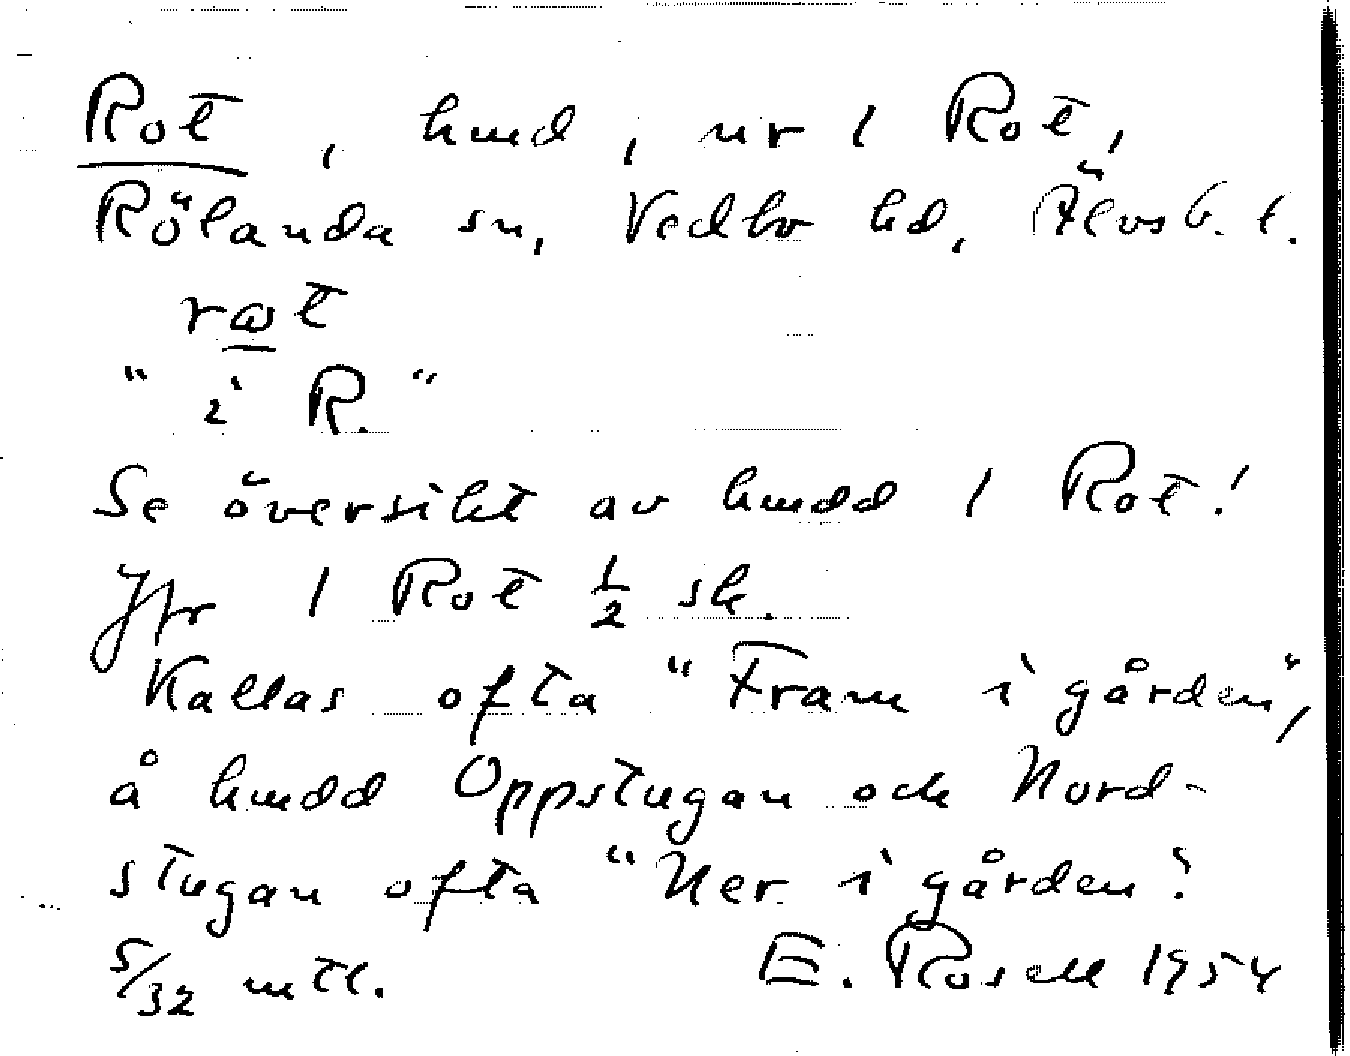 Rot, hmd, ur 1 Rot,
Rölanda sn, Vedbo hd, Älvsb. l.
rωt
"i R."
Se översikt av hmdd 1 Rot!
Jfr 1 Rot 1/2 sk.
Kallas ofta "Fram i gården",
å hmdd Oppstugan och Nord-
stugan ofta "Ner i gården".
5/32 mtl. E. Rosell 1954